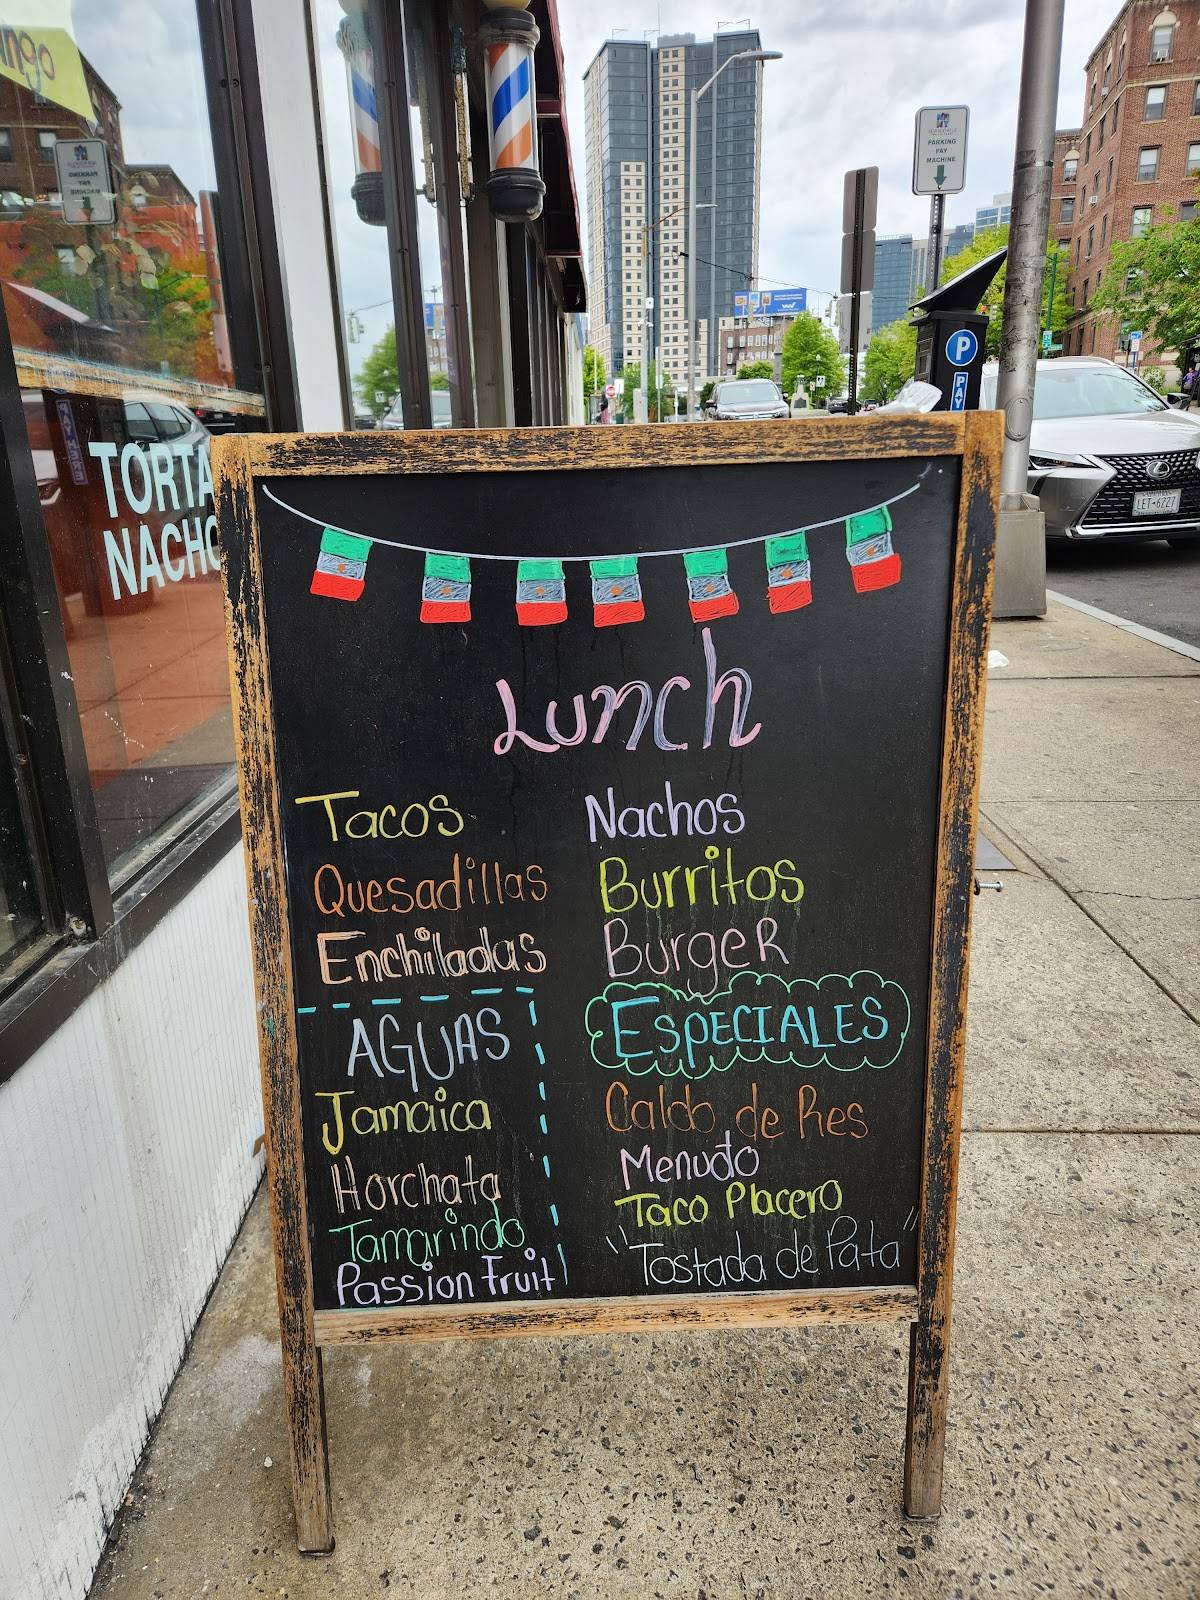 PARKING
PAY
MACHINE
P
PAY
LET 6227
TORTA
NACHO
Lunch
Tacos
Quesadillas
Enchiladas
Nachos
Burritos
BurgeR
AGUAS
Jamaica
Horchata
Tamarindo
Passion Fruit
ESPECIALES
Caldo de Res
Menudo
Taco Placero
"Tostada de Pata"